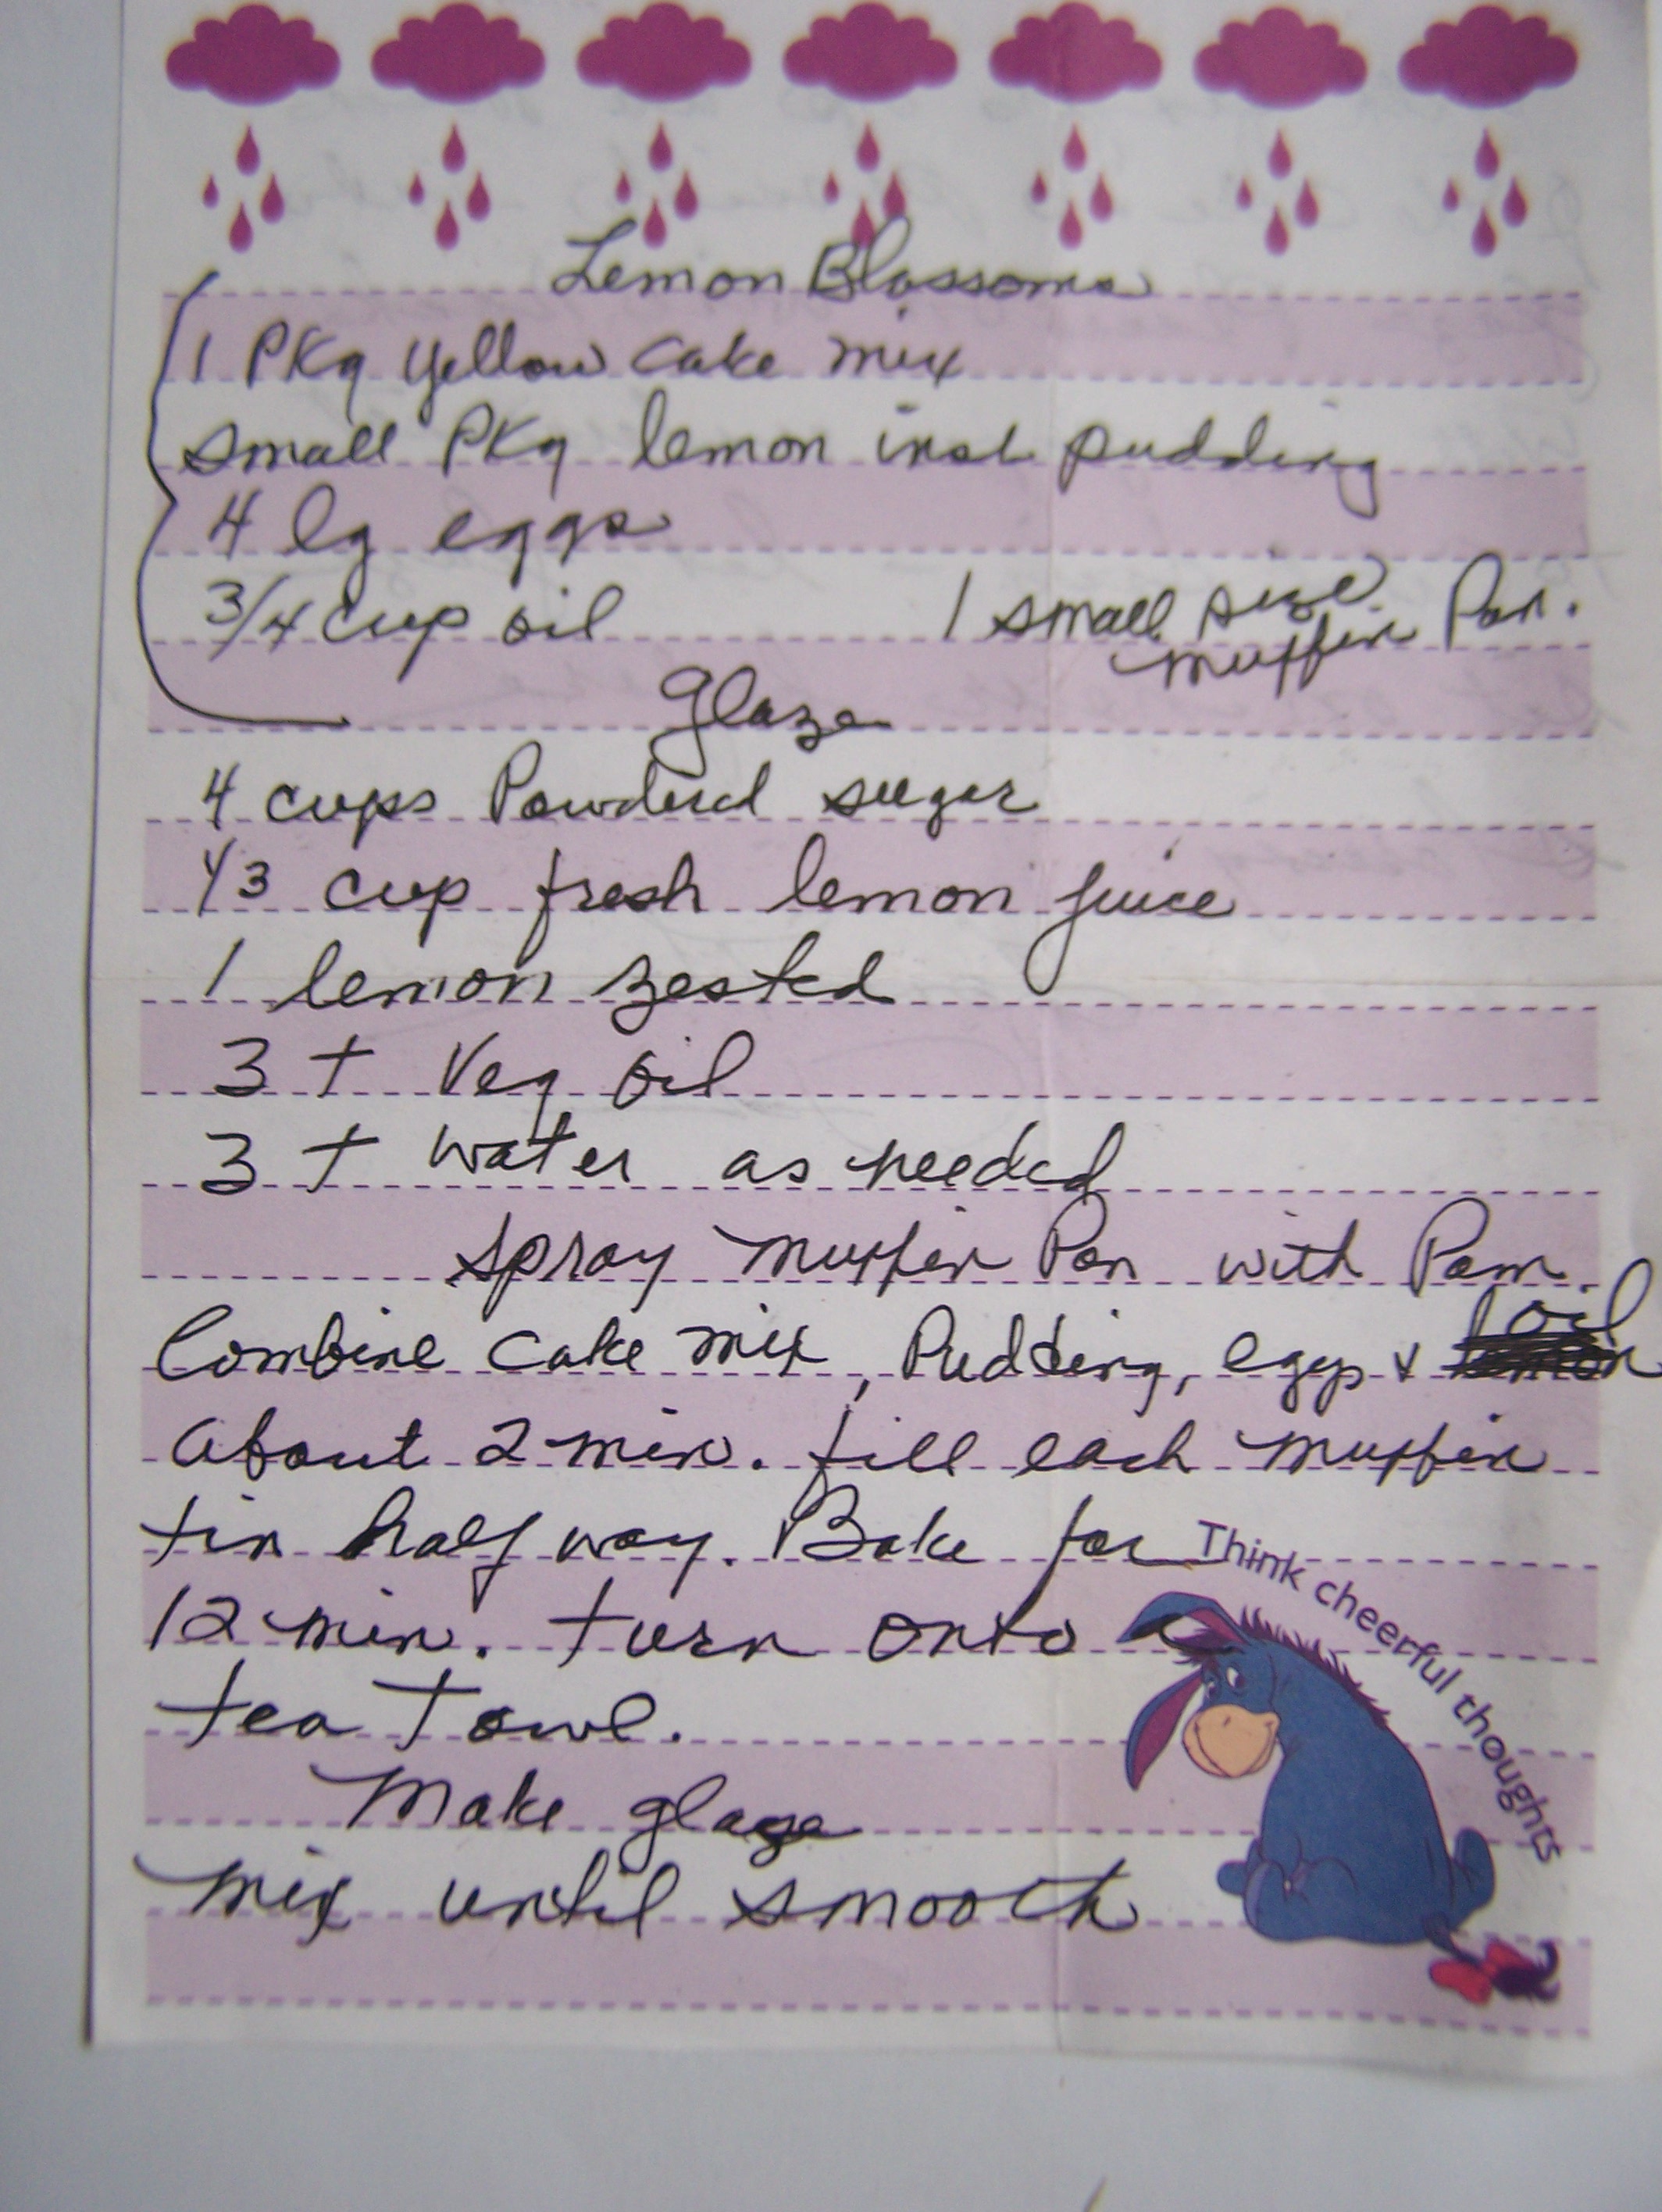 Lemon Blossoms
1 Pkg yellow cake mix
small Pkg lemon inst pudding
4 lg eggs
3/4 cup oil
1 small size
muffin Pan.
Glaze
4 cups Powdered sugar
1/3 cup fresh lemon juice
1 lemon zested
3 t Veg oil
3 t water as needed
Spray muffin Pan with Pam.
Combine cake mix, Pudding, eggs & oil
about 2 min. fill each muffin
tin half way. Bake for
12 min. turn onto a
tea Towl.
Make glaze
mix until smooth
Think cheerful thoughts